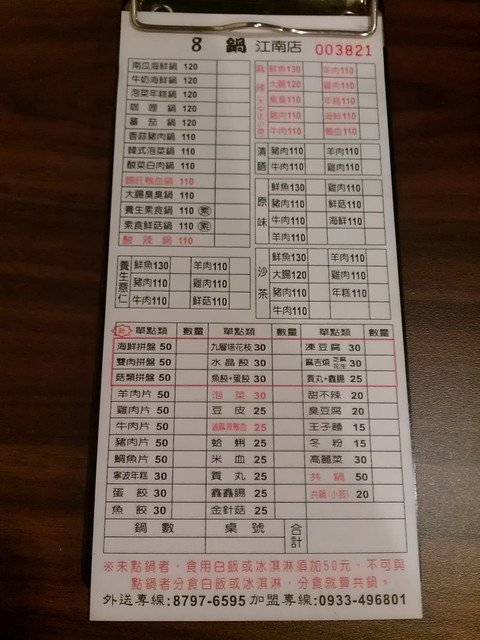 8 鍋 江南店 003821
南瓜海鮮鍋 120
牛奶海鮮鍋 120
泡菜年糕鍋 120
咖哩鍋 120
蕃茄鍋 120
香菇豬肉鍋 110
韓式泡菜鍋 110
酸菜白肉鍋 110
鍋紅鴨血鍋 110
大腸臭臭鍋 110
養生素食鍋 110 素
素食鮮菇鍋 110 素
酸辣鍋 110
麻辣(大中正小微)
鮮魚130 羊肉110
大腸120 雞肉110
臭臭110 年糕110
豬肉110 海鮮110
牛肉110 鴨血110
清麵
豬肉110 羊肉110
牛肉110 雞肉110
原味
鮮魚130 雞肉110
豬肉110 鮮菇110
牛肉110 海鮮110
羊肉110
養生薏仁
鮮魚130 羊肉110
豬肉110 雞肉110
牛肉110 鮮菇110
沙茶
鮮魚130 羊肉110
大腸120 雞肉110
豬肉110 年糕110
牛肉110
單點類 數量 單點類 數量 單點類 數量
海鮮拼盤 50 九層塔花枝 30 凍豆腐 30
雙肉拼盤 50 水晶餃 30 麻吉燒 芝麻 花生 30
菇類拼盤 50 魚餃+蛋餃 30 貢丸+鑫腸 25
羊肉片 50 泡菜 30 甜不辣 20
雞肉片 50 豆皮 25 臭豆腐 20
牛肉片 50 滷麻辣鴨血 25 王子麵 15
豬肉片 50 蛤蜊 25 冬粉 15
鯛魚片 50 米血 25 高麗菜 30
寧波年糕 30 貢丸 25 共鍋 50
蛋餃 30 鑫鑫腸 25 共鍋(小孩) 20
魚餃 30 金針菇 25
鍋數 桌號 合計
※未點鍋者，食用白飯或冰淇淋須加50元，不可與
點鍋者分食白飯或冰淇淋，分食就算共鍋。
外送專線:8797-6595 加盟專線:0933-496801